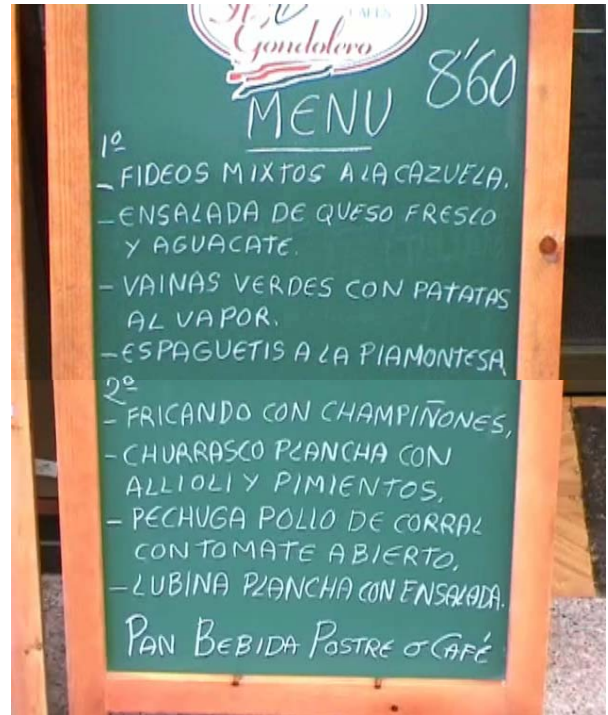 CAFÉS
Gondolero
8'60
MENU
1º
- FIDEOS MIXTOS A LA CAZUELA.
- ENSALADA DE QUESO FRESCO
Y AGUACATE.
- VAINAS VERDES CON PATATAS
AL VAPOR.
- ESPAGUETIS A LA PIAMONTESA
2º
- FRICANDO CON CHAMPIÑONES,
- CHURRASCO PLANCHA CON
ALLIOLI Y PIMIENTOS,
- PECHUGA POLLO DE CORRAL
CON TOMATE ABIERTO,
- LUBINA PLANCHA CON ENSALADA.
PAN BEBIDA POSTRE O CAFÉ